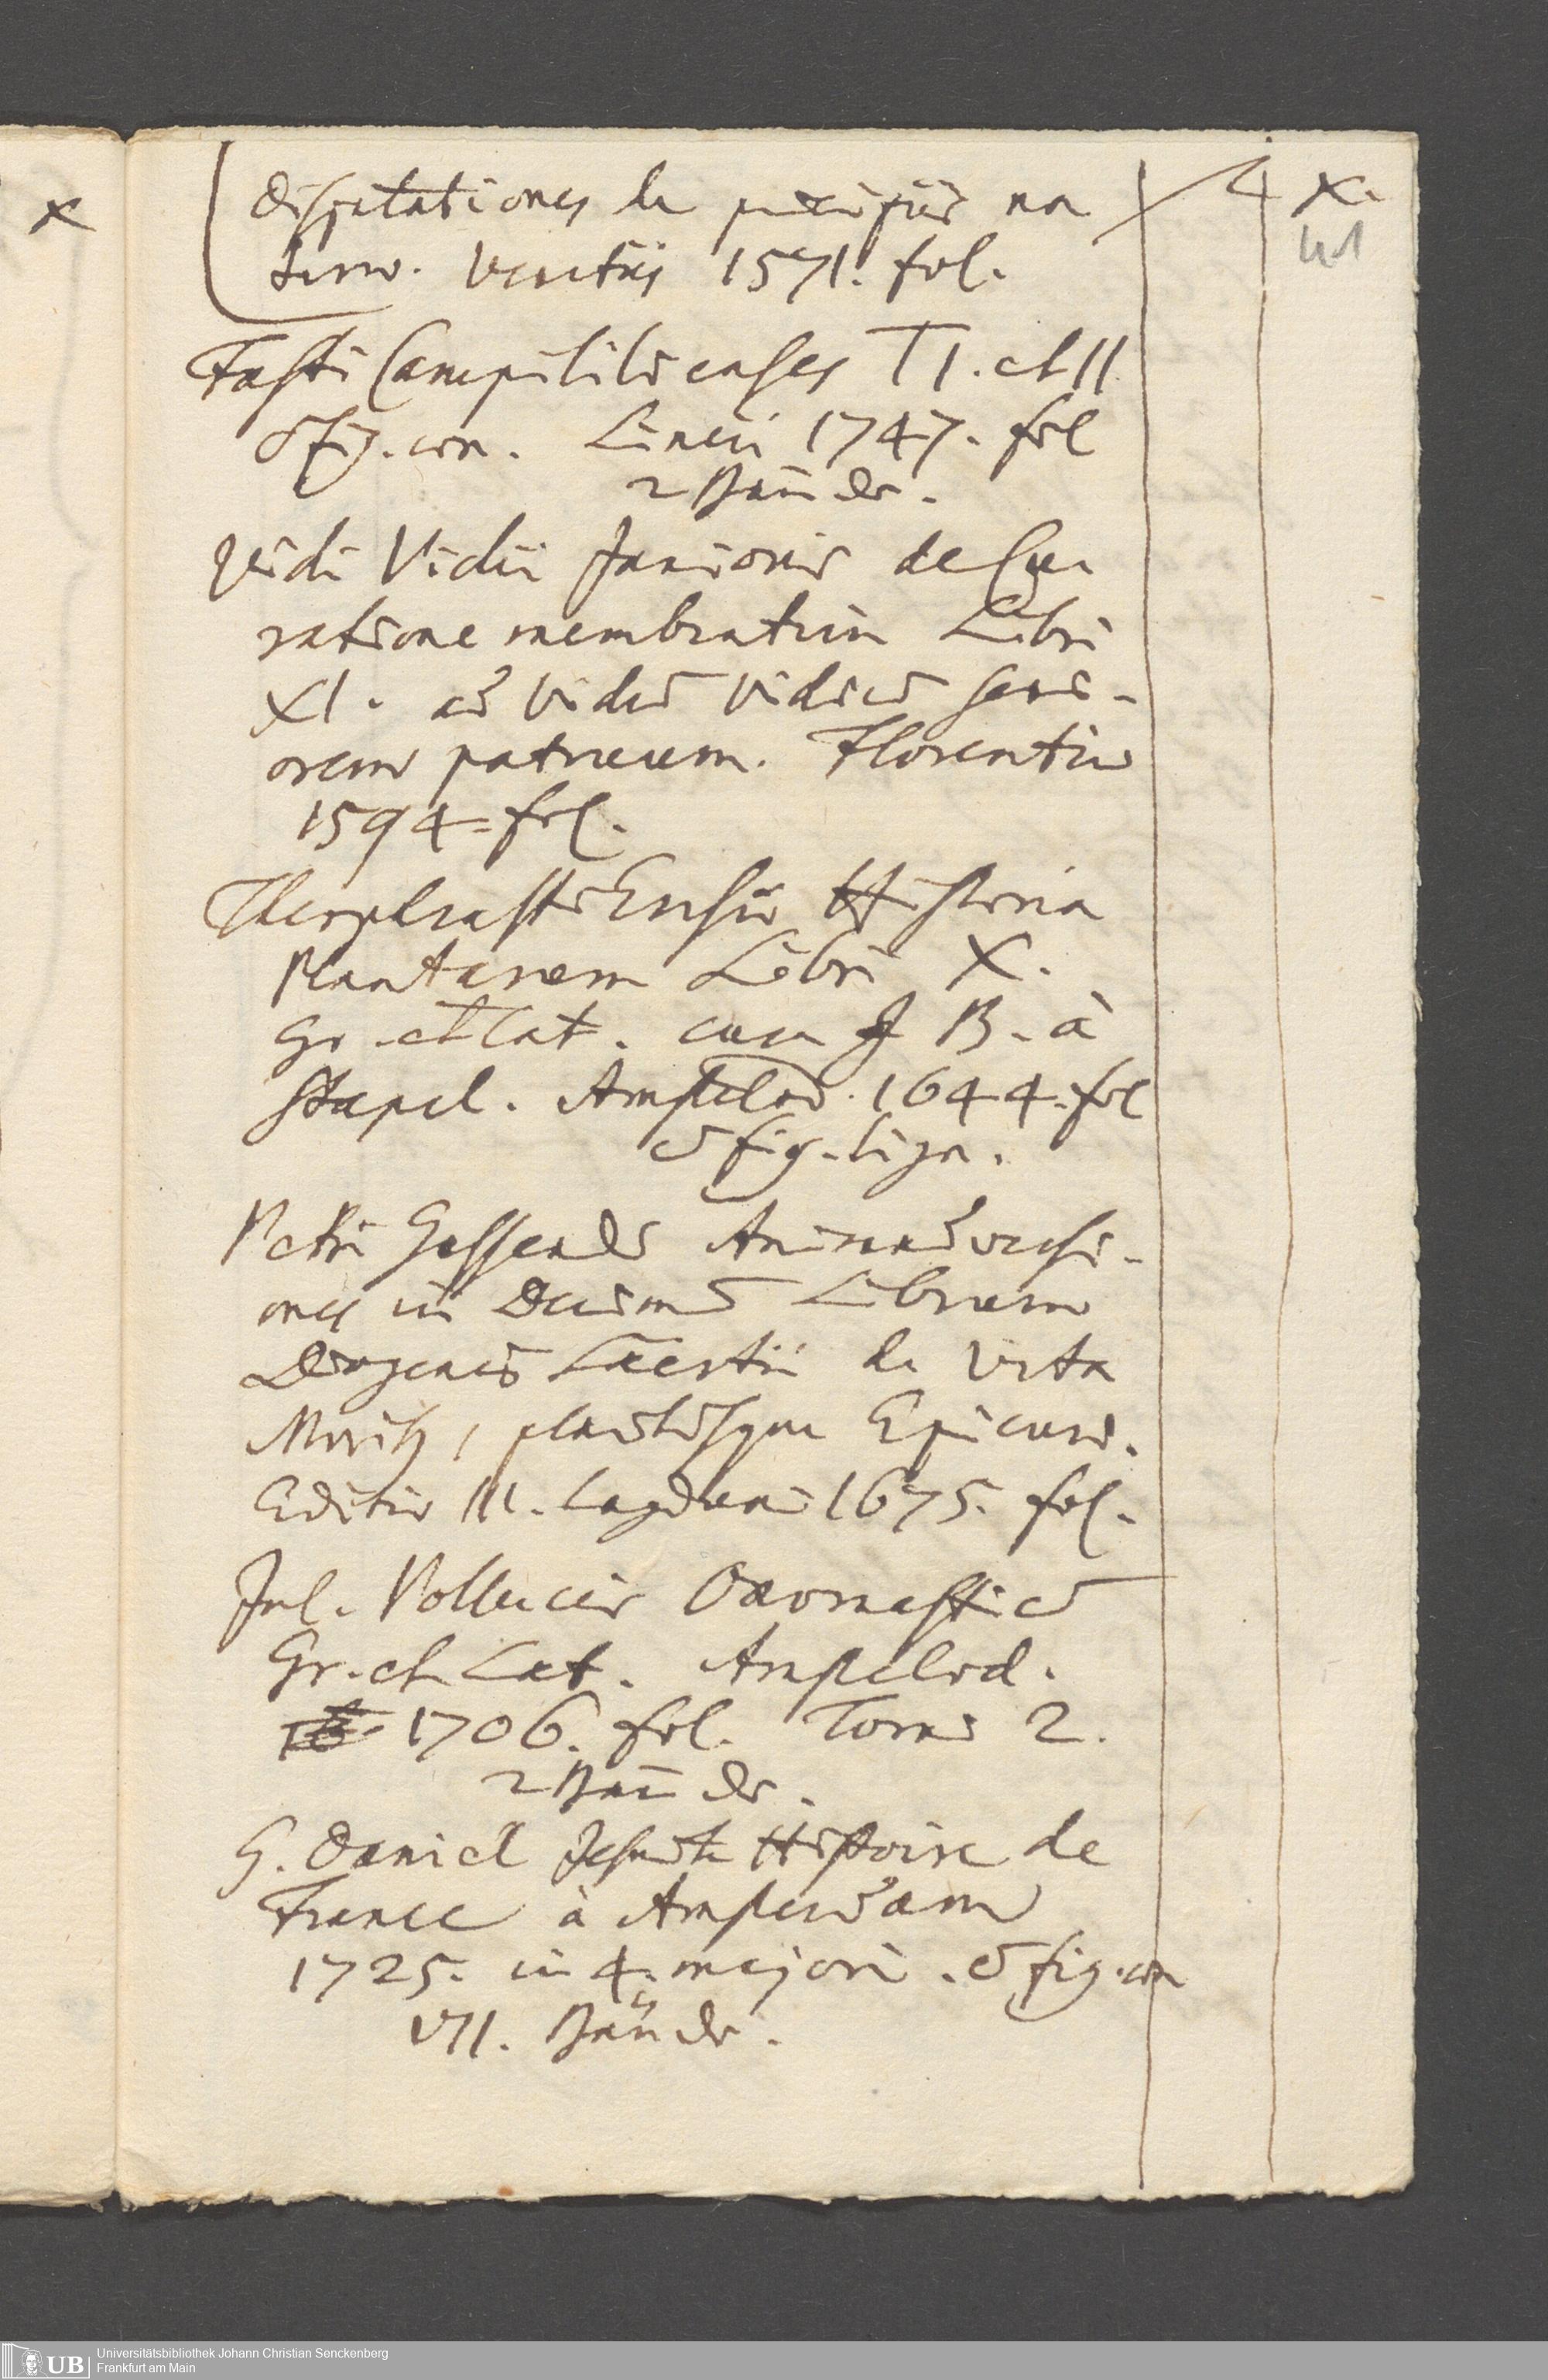 x
Disputationes de principiis na
turae. Venetiis 1571. fol.
4 x.
Fasti Campililienses T I. et II.
c fig. aen. Lincii 1747. fol
2 Bände.
Vidi Vidii Junioris de Cu-
ratione membratim Libri
XI. ad Vidum Vidium seni-
orem patruum. Florentiae
1594. fol.
Theophrasti Eresii Historia
Plantarum Libri X.
Gr. et Lat. cum J B. à
Stapel. Amstelod. 1644. fol
c fig. lign.
Petri Gassendi Animadversi-
ones in Decimum Librum
Diogenis Laertii de Vita
Morib, placitisque Epicuri.
Editio III. Lugduni 1675. fol.
Jul. Pollucis Onomasticum
Gr. et Lat. Amstelod.
1706. fol. Tomi 2.
2 Bände.
G. Daniel Jesuite Histoire de
France à Amsterdam
1725. in 4. majori. c fig. aen
VII. Bände.
UB
Universitätsbibliothek Johann Christian Senckenberg
Frankfurt am Main